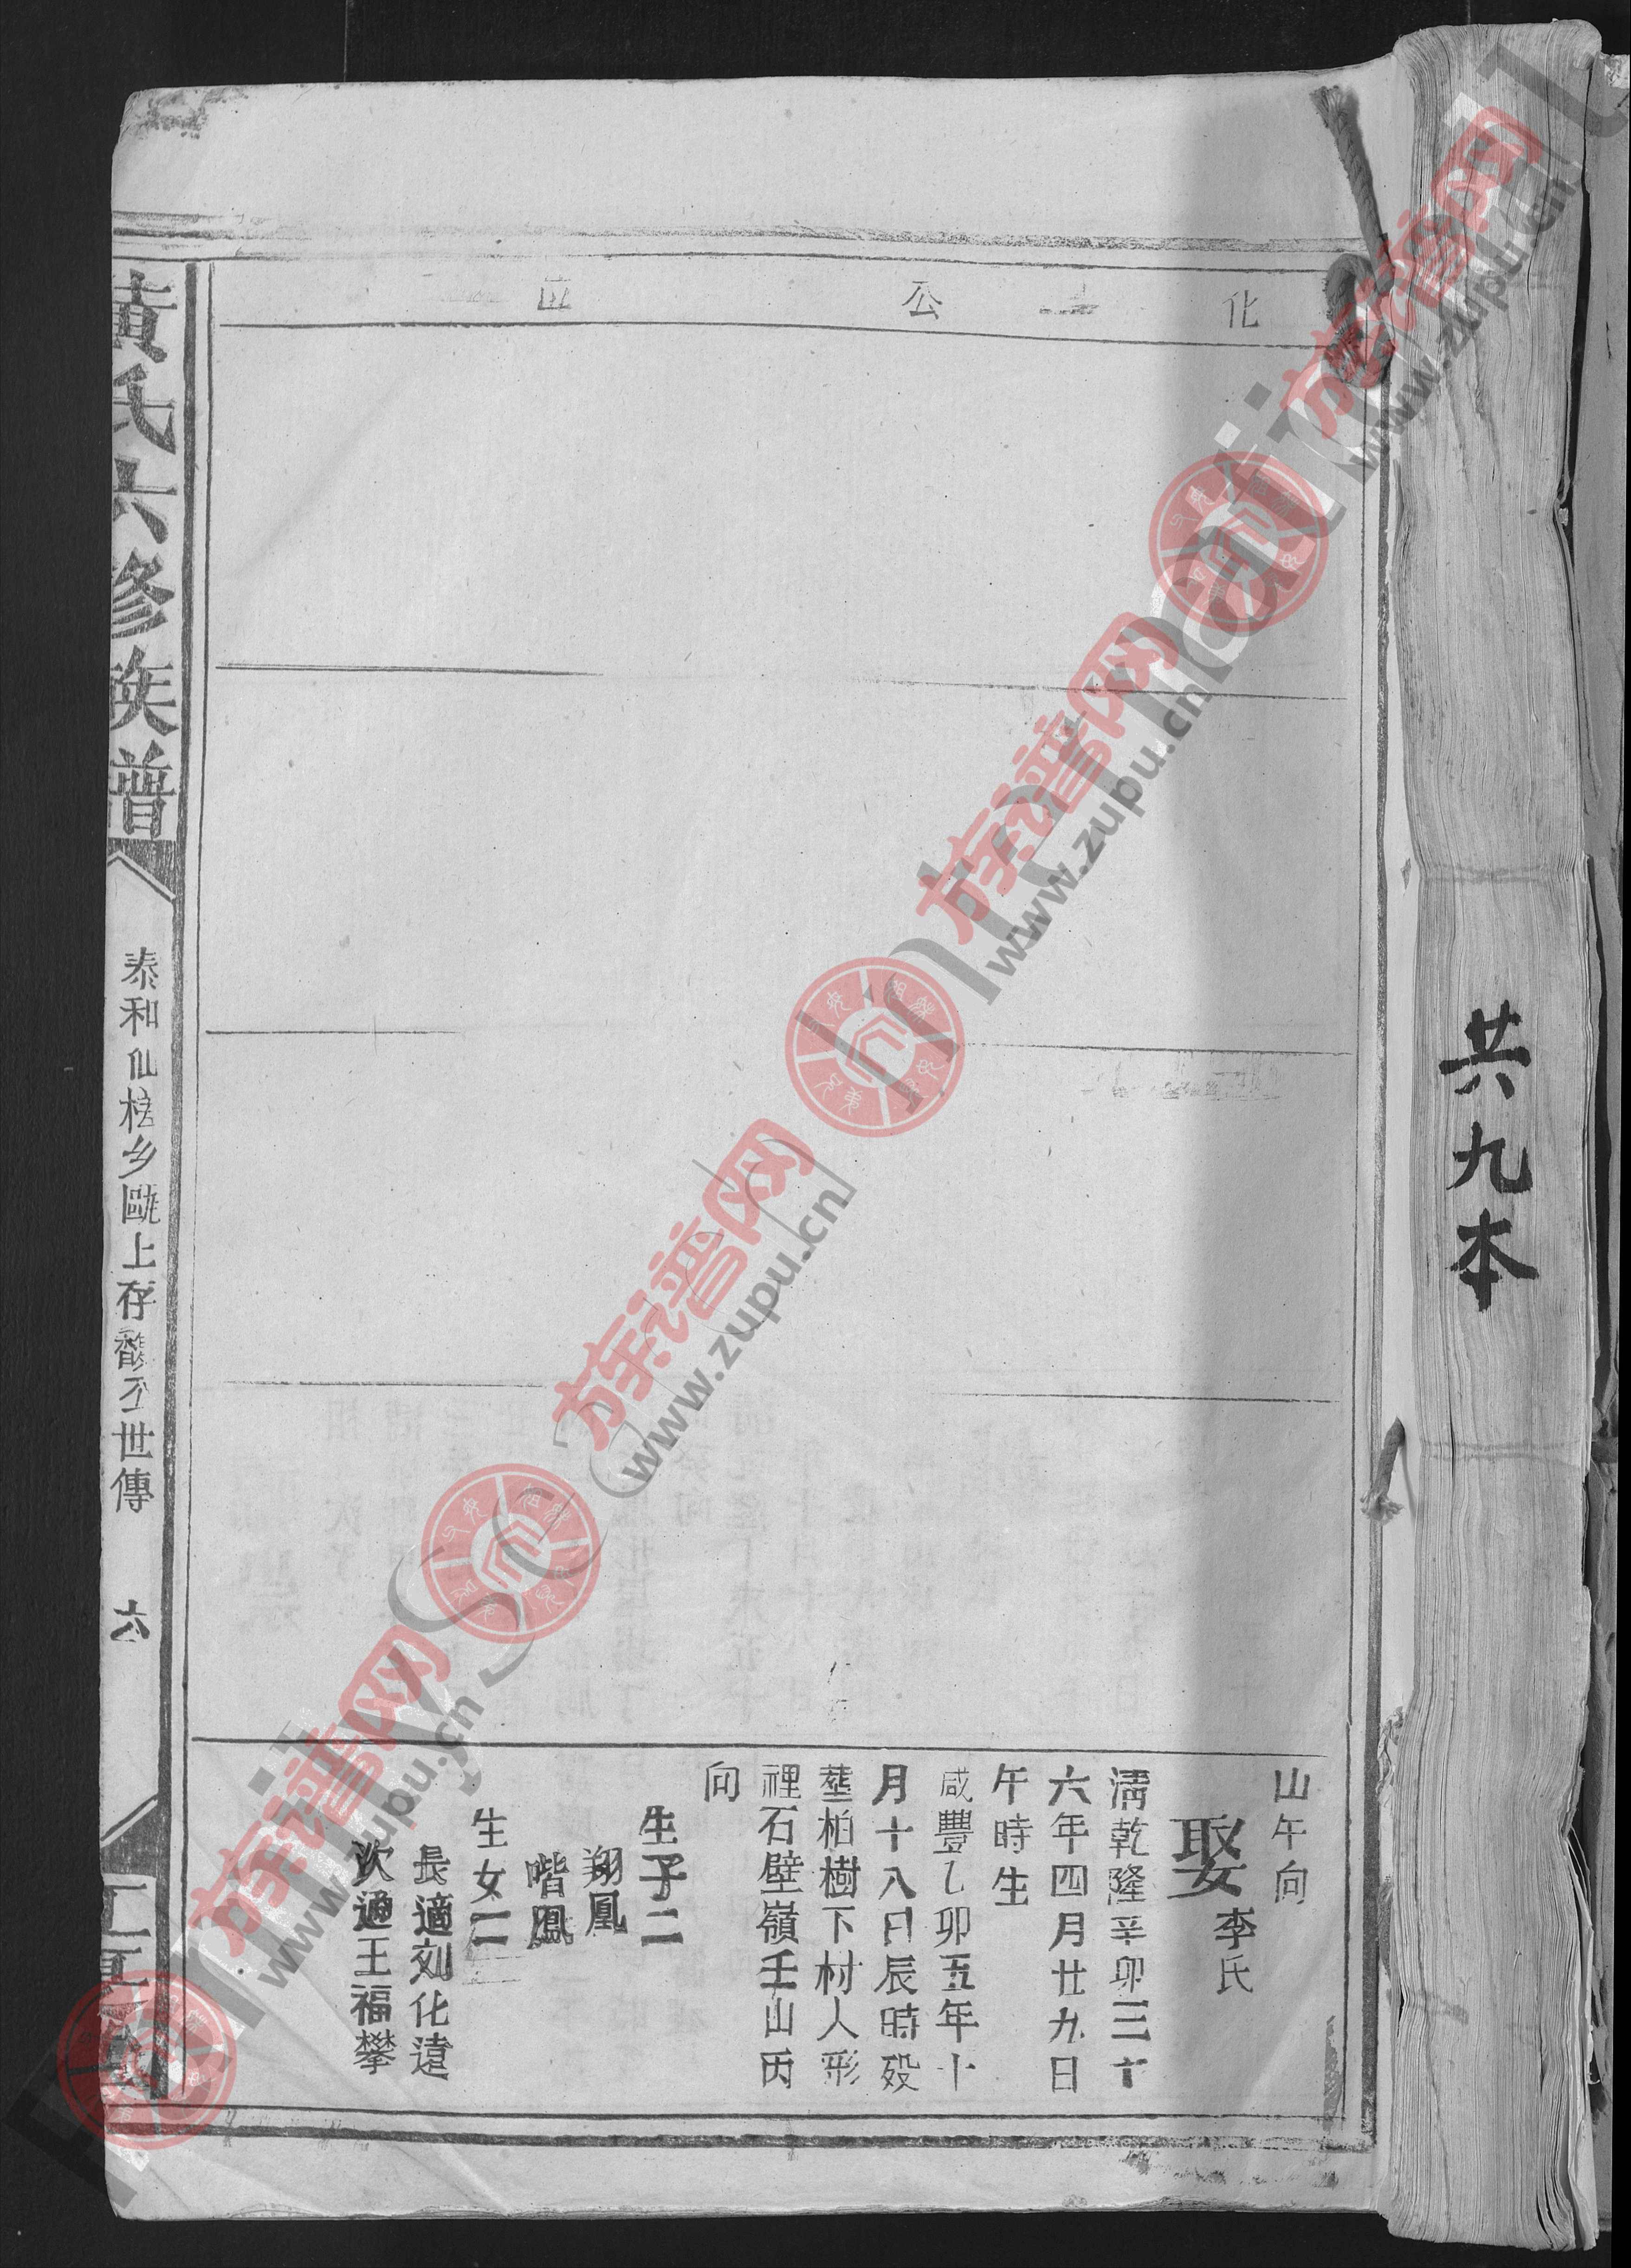 共九本
化
公
山午向
娶李氏
清乾隆辛卯三十
六年四月廿九日
午時生
咸豐乙卯五年十
月十八日辰時殁
塟柏樹下村人形
裡石壁嶺壬山丙
向
生子二
翔鳳
喈鳳
生女二
長適刘化遠
次適王福攀
黄氏六修族譜
泰和仙槎乡
上存
世傳
六
族谱网
www.zupu.cn
族谱网
www.zupu.cn
族谱网
www.zupu.cn
族谱网
www.zupu.cn